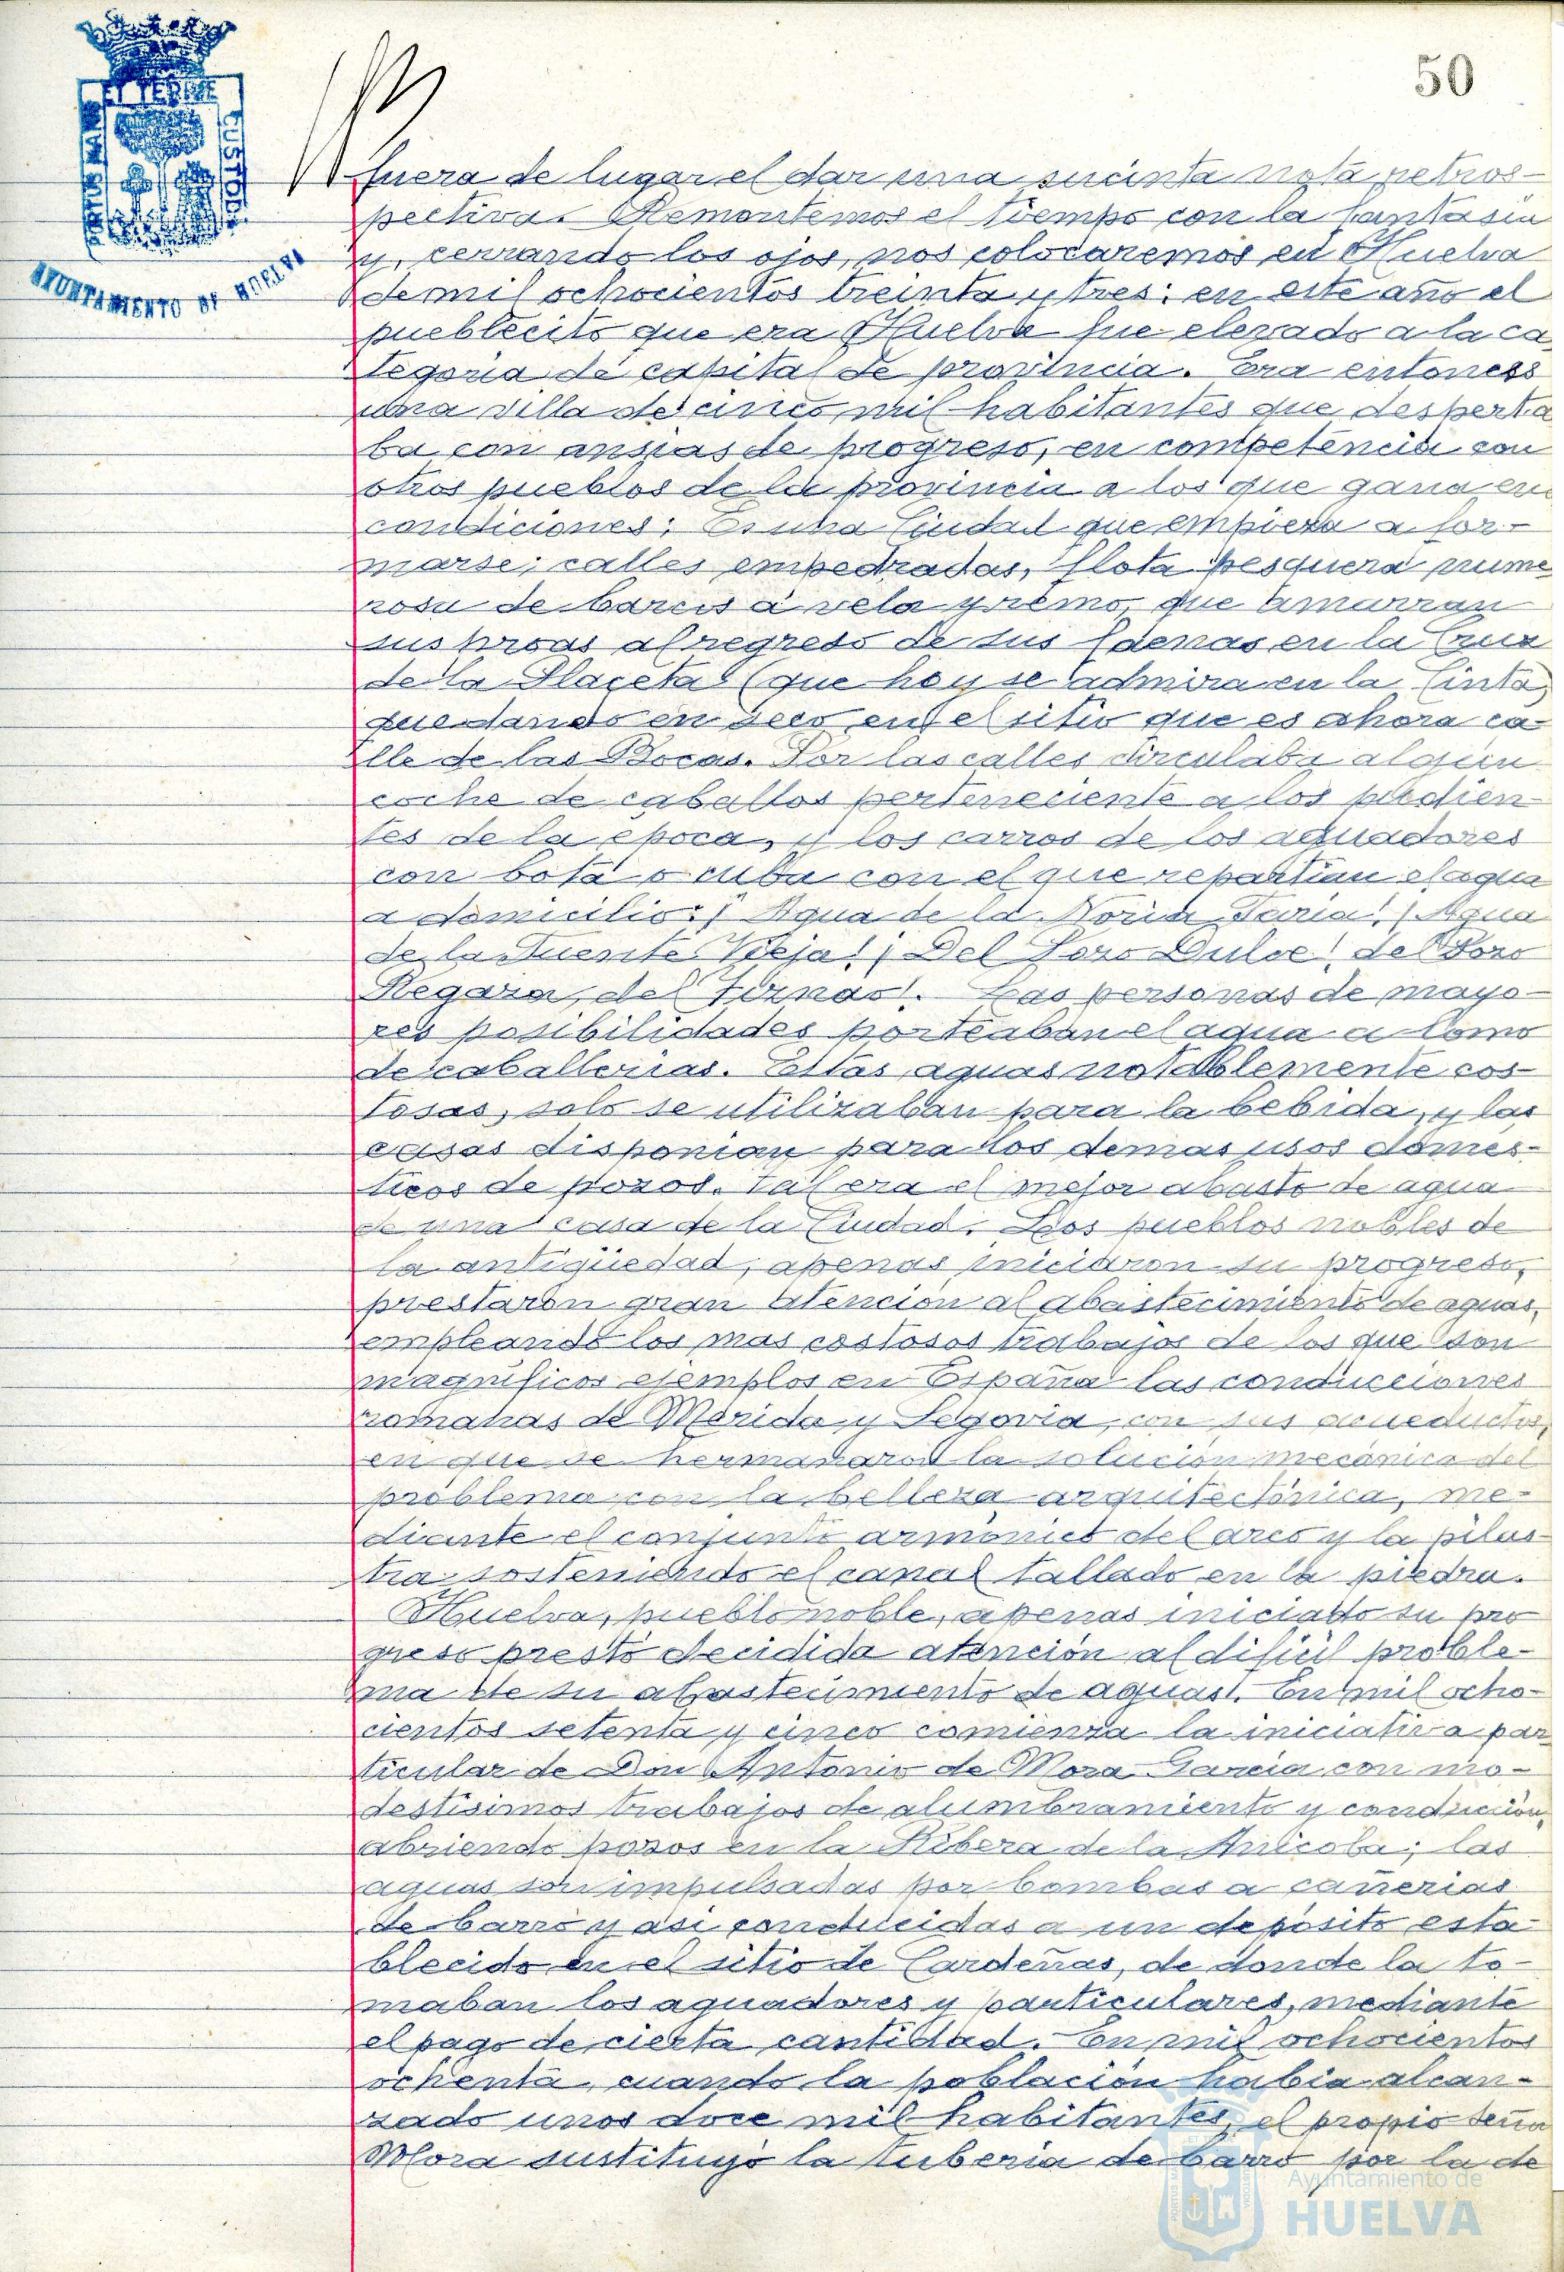 50
PORTUS MARIS
ET TERRAE
CUSTODIA
AYUNTAMIENTO DE HUELVA
fuera de lugar el dar una sucinta nota retros-
pectiva. Remontemos el tiempo con la fantasia
y, cerrando los ojos, nos colocaremos en Huelva
de mil ochocientos treinta y tres: en este año el
pueblecito que era Huelva fue elevado a la ca
tegoria de capital de provincia. Era entonces
una villa de cinco mil habitantes que desperta
ba con ansias de progreso, en competencia con
otros pueblos de la provincia a los que gana en
condiciones: Es una Ciudad que empieza a for-
marse; calles empedradas, flota pesquera nume
rosa de barcos a vela y remo, que amarran
sus proas al regreso de sus faenas en la Cruz
de la Placeta (que hoy se admira en la Cinta)
quedando en seco en el sitio que es ahora ca-
lle de las Bocas. Por las calles circulaba algún
coche de caballos perteneciente a los pudien-
tes de la epoca, y los carros de los aguadores
con bota o cuba con el que repartian el agua
a domicilio: ¡Agua de la Noria ! ¡Agua
de la Fuente Vieja! ¡Del Pozo Dulce! del Pozo
del ! Las personas de mayo-
res posibilidades porteaban el agua a lomo
de caballerias. Estas aguas notablemente cos-
tosas, solo se utilizaban para la bebida, y las
casas disponian para los demas usos domes-
ticos de pozos. Tal era el mejor abasto de agua
de una casa de la Ciudad. Los pueblos nobles de
la antigüedad, apenas iniciaron su progreso,
prestaron gran atencion al abastecimiento de aguas,
empleando los mas costosos trabajos de los que son
magnificos ejemplos en España las conducciones
romanas de Merida y Segovia, con sus acueductos,
en que se hermanaron la solución mecánica del
problema con la belleza arquitectónica, me-
diante el conjunto armónico del arco y la pilas-
tra sosteniendo el canal tallado en la piedra.
Huelva, pueblo noble, apenas iniciado su pro
greso prestó decidida atención al dificil proble-
ma de su abastecimiento de aguas. En mil ocho-
cientos setenta y cinco comienza la iniciativa par
ticular de Don Antonio de Mora Garcia con mo-
destisimos trabajos de alumbramiento y conducción,
abriendo pozos en la Ribera de la Anicoba; las
aguas son impulsadas por bombas a cañerias
de barro y asi conducidas a un deposito esta-
blecido en el sitio de Cardeñas, de donde la to-
maban los aguadores y particulares, mediante
el pago de cierta cantidad. En mil ochocientos
ochenta, cuando la población habia alcan-
zado unos doce mil habitantes, el propio Señor
Mora sustituyó la tuberia de barro por la de
Ayuntamiento de
HUELVA